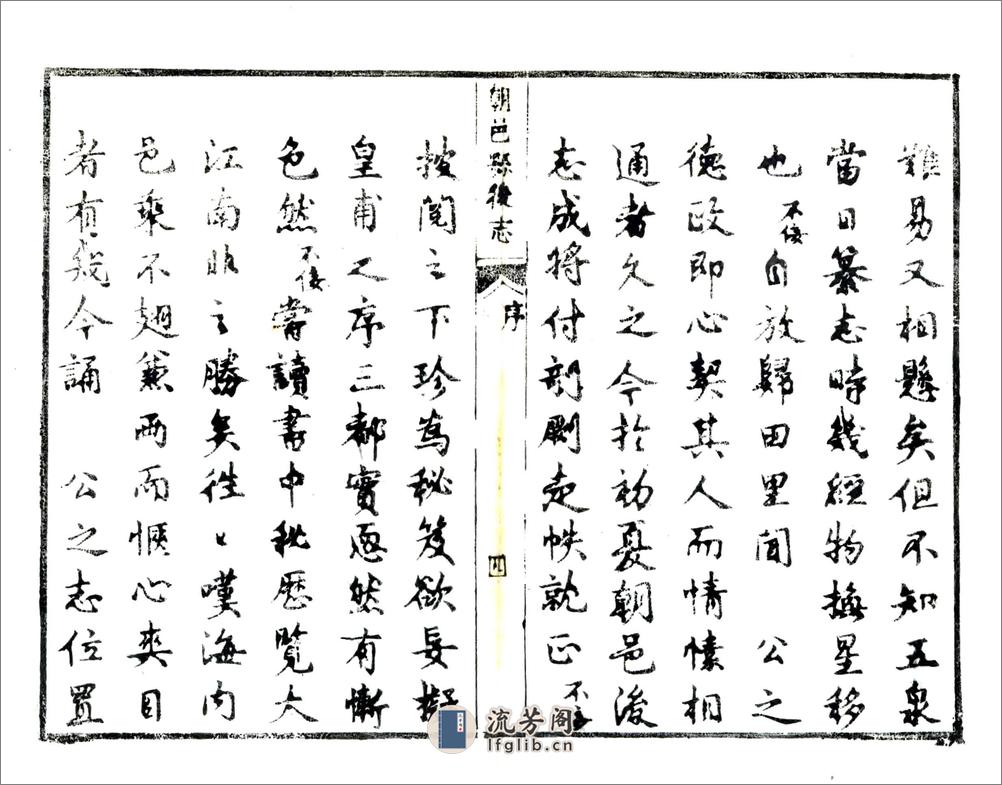 難易又相懸矣但不知五泉
當日纂志時幾經物換星移
也不佞自放歸田里聞 公之
德政即心契其人而情愫相
通者久之今於初夏朝邑後
志成將付剞劂走帙就正不佞
朝邑縣後志 序 四
披閱之下珍為秘笈欲妄擬
皇甫之序三都實恧然有慚
色然不佞嘗讀書中秘歷覽大
江南北之勝矣往〻嘆海內
邑乘不翅兼兩而愜心爽目
者有幾今誦 公之志位置
流芳阁
lfglib.cn